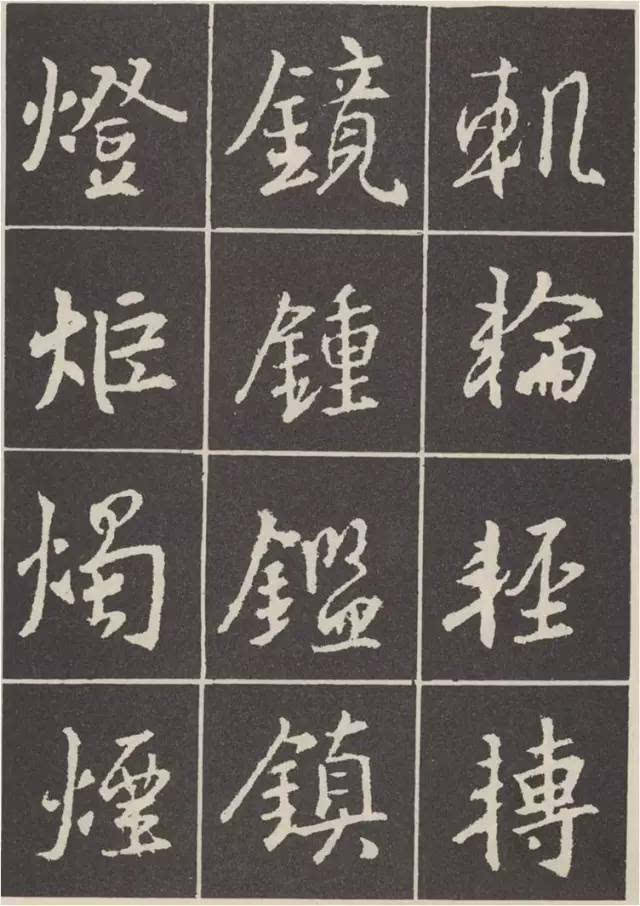 軌輪輕轉
鏡鍾鑑鎮
燈炬燭煙